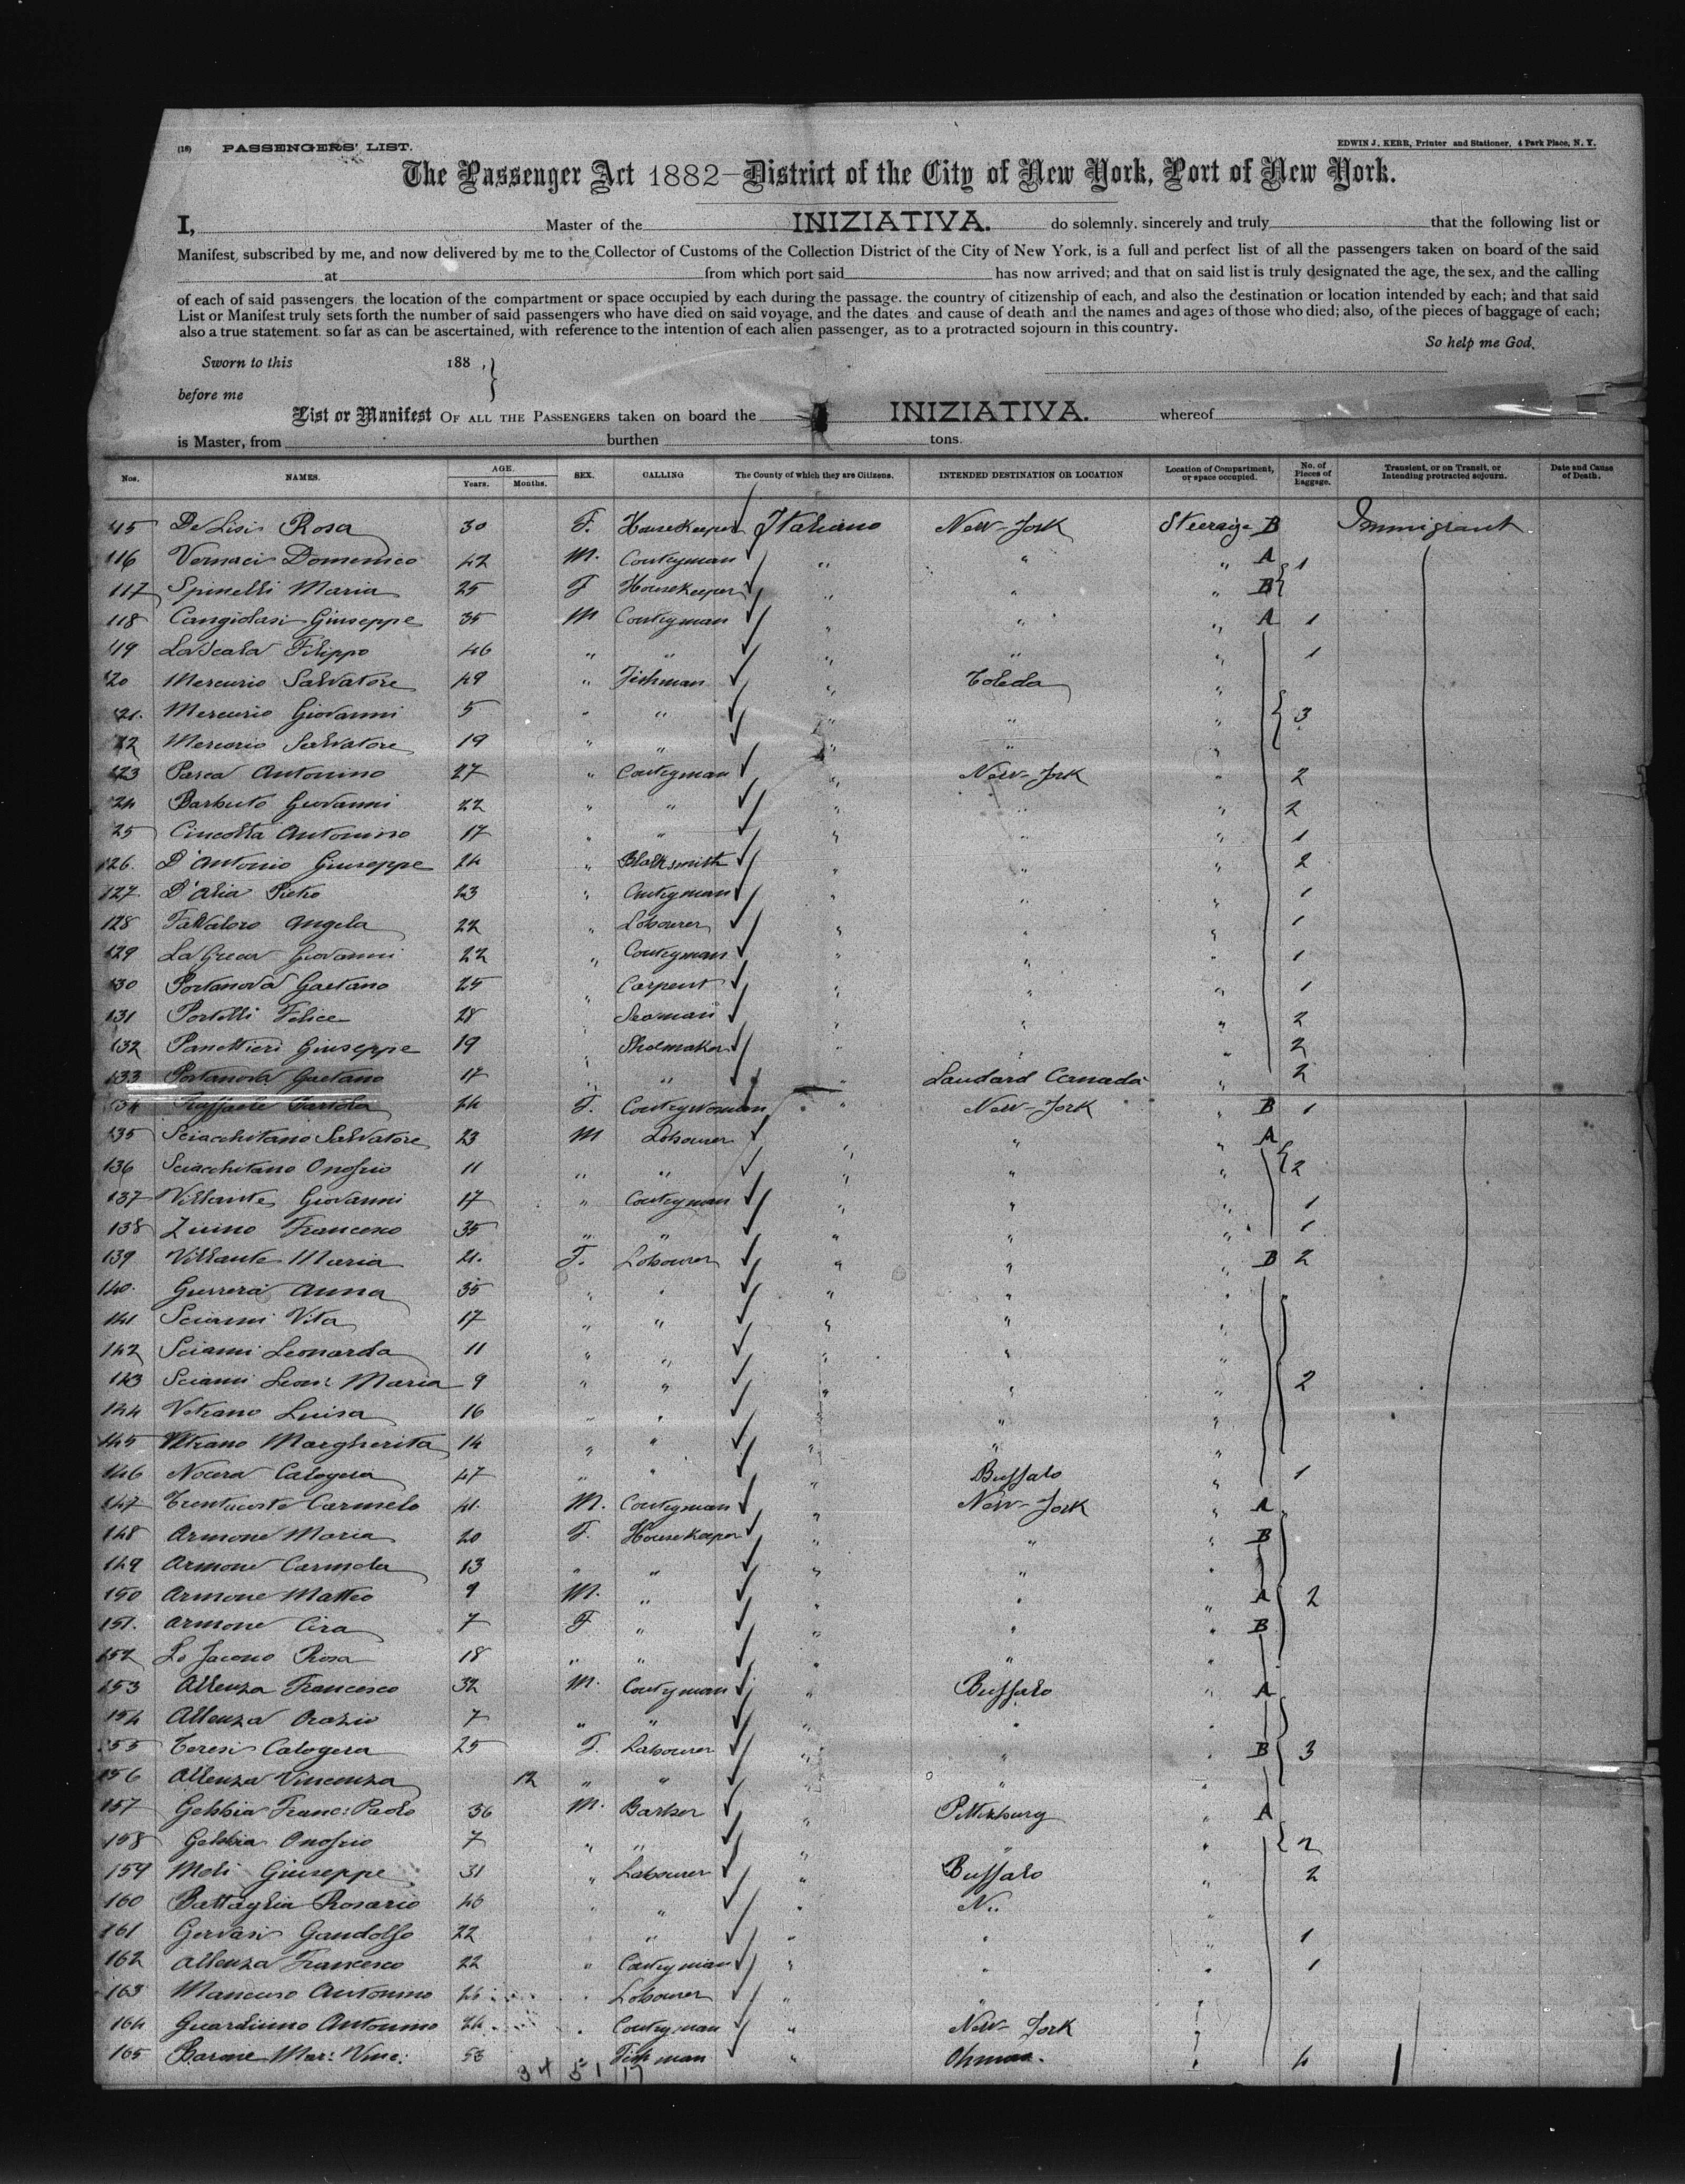 (18) PASSENGERS' LIST. EDWIN J. KERR, Printer and Stationer, 4 Park Place, N. Y.
The Passenger Act 1882—District of the City of New York, Port of New York.
I, Master of the INIZIATIVA. do solemnly, sincerely and truly that the following list or
Manifest, subscribed by me, and now delivered by me to the Collector of Customs of the Collection District of the City of New York, is a full and perfect list of all the passengers taken on board of the said
at from which port said has now arrived; and that on said list is truly designated the age, the sex, and the calling
of each of said passengers, the location of the compartment or space occupied by each during the passage, the country of citizenship of each, and also the destination or location intended by each; and that said
List or Manifest truly sets forth the number of said passengers who have died on said voyage, and the dates and cause of death and the names and ages of those who died; also, of the pieces of baggage of each;
also a true statement, so far as can be ascertained, with reference to the intention of each alien passenger, as to a protracted sojourn in this country.
So help me God.
Sworn to this 188 ,
before me
List or Manifest OF ALL THE PASSENGERS taken on board the INIZIATIVA. whereof
is Master, from burthen tons.
Nos. NAMES. AGE. Years. Months. SEX. CALLING The County of which they are Citizens. INTENDED DESTINATION OR LOCATION Location of Compartment, or space occupied. No. of Pieces of Baggage. Transient, or on Transit, or Intending protracted sojourn. Date and Cause of Death.
115 De Lisi Rosa 30 F. HouseKeeper Italiano New-York Steeraige B Immigrant
116 Vernaci Domenico 42 M. Contryman " " " A 1
117 Spinelli Maria 25 F HouseKeeper " " " B
118 Cangiolasi Giuseppe 35 M Contryman " " " A 1
119 La Scala Filippo 46 " " " " " 1
120 Mercurio Salvatore 49 " Fishman " Toledo "
121. Mercurio Giovanni 5 " " " " " 3
122 Mercurio Salvatore 19 " " " " "
123 Parca Antonino 27 " Contryman " New-York " 2
124 Barbuto Giovanni 22 " " " " " 2
125 Cincotta Antonino 17 " " " " " 1
126. D'Antonio Giuseppe 24 " Blacksmith " " " 2
127. D'Alia Pietro 23 " Contryman " " " 1
128 Favaloro Angela 22 " Labourer " " " 1
129 La Greca Giovanni 22 " Contryman " " " 1
130 Portanova Gaetano 25 " Carpent " " " 1
131 Portelli Felice 28 Seaman " " " 2
132 Panettieri Giuseppe 19 " Shoemaker " " " 2
133 Portanova Gaetano 17 " " " Landard Canada " 2
134 Raffaele 24 F. Contrywoman " New-York " B 1
135 Sciacchitano Salvatore 23 M Labourer " " " A
136 Sciacchitano Onofrio 11 " " " " " 2
137 Villante Giovanni 17 " Contryman " " " 1
138 Zuino Francesco 35 " " " " " 1
139 Villante Maria 21. F. Labourer " " " B 2
140. Guerrera Anna 35 " " " " "
141 Scianni Vita 17 " " " " "
142 Scianni Leonarda 11 " " " " "
143 Scianni Leon: Maria 9 " " " " " 2
144 Vitrano Luisa 16 " " " " "
145 Vitrano Margherita 14 " " " " "
146 Nocera Calogera 47 " " " Buffalo " 1
147 Trentacoste Carmelo 41. M. Contryman " New-York " A
148 Armone Maria 20 F. HouseKeeper " " " B
149 Armone Carmela 13 " " " " "
150 Armone Matteo 9 M. " " " " A 2
151. Armone Cira 7 F " " " " B
152 Lo Jacono Rosa 18 " " " " "
153 Allenza Francesco 32 M. Contryman " Buffalo " A
154 Allenza Orazio 7 " " " " "
155 Teresi Calogera 25 F. Labourer " " " B 3
156 Allenza Vincenza 12 " " " " "
157 Gebbia Franc: Paolo 36 M. Barber " Pittsburg " A
158 Gebbia Onofrio 7 " " " " " 2
159 Meli Giuseppe 31 " Labourer " Buffalo " 2
160 Battaglia Rosario 40 " " " N.. "
161 Gervasi Gandolfo 22 " " " " 1
162 Allenza Francesco 22 " Contryman " " " 1
163 Mancuso Antonino 26 " Labourer " " "
164 Guardiuno Antonino 24 " Contryman " New York "
165 Barone Mar: Vinc: 53 Fishman " " 4
34 51 17